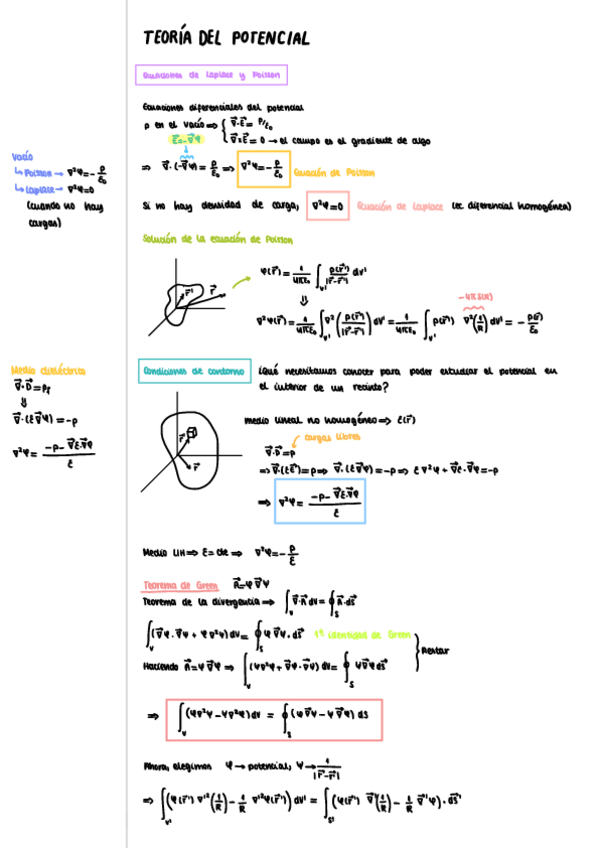 TEORÍA DEL POTENCIAL
Ecuaciones de Laplace y Poisson
Ecuaciones diferenciales del potencial
ρ en el vacío ⇒ { ∇⃗·E⃗ = ρ/ε₀
∇⃗×E⃗ = 0 → el campo es el gradiente de algo
E⃗=-∇⃗φ
⇒ ∇⃗·(-∇⃗φ) = ρ/ε₀ ⇒ ∇²φ = -ρ/ε₀ Ecuación de Poisson
Vacío
↳ Poisson → ∇²φ = -ρ/ε₀
↳ Laplace → ∇²φ=0
(cuando no hay
cargas)
Si no hay densidad de carga, ∇²φ=0 Ecuación de Laplace (ec diferencial homogénea)
Solución de la ecuación de Poisson
r⃗' r⃗
φ(r⃗) = 1/4πε₀ ∫v' ρ(r⃗')/|r⃗-r⃗'| dv'
⇓
-4πδ(R)
∇²φ(r⃗) = 1/4πε₀ ∫v' ∇²(ρ(r⃗')/|r⃗-r⃗'|) dv' = 1/4πε₀ ∫v' ρ(r⃗') ∇²(1/R) dv' = -ρ(r⃗)/ε₀
Medio dieléctrico
∇⃗·D⃗ = ρf
⇓
∇⃗·(ε∇⃗φ) = -ρ
∇²φ = (-ρ-∇⃗ε·∇⃗φ)/ε
Condiciones de contorno ¿Qué necesitamos conocer para poder estudiar el potencial en
el interior de un recinto?
r⃗' r⃗
medio lineal no homogéneo ⇒ ε(r⃗)
cargas libres
∇⃗·D⃗ = ρ
⇒ ∇⃗·(εE⃗) = ρ ⇒ ∇⃗·(ε∇⃗φ) = -ρ ⇒ ε∇²φ + ∇⃗ε·∇⃗φ = -ρ
⇒ ∇²φ = (-ρ-∇⃗ε·∇⃗φ)/ε
Medio LIH ⇒ ε = cte ⇒ ∇²φ = -ρ/ε
Teorema de Green A⃗ = φ∇⃗ψ
Teorema de la divergencia ⇒ ∫v ∇⃗·A⃗ dv = ∮s A⃗·dS⃗
∫v (∇⃗φ·∇⃗ψ + φ∇²ψ) dv = ∮s φ∇⃗ψ·dS⃗ 1ª identidad de Green
Haciendo A⃗ = ψ∇⃗φ ⇒ ∫v (ψ∇²φ + ∇⃗φ·∇⃗ψ) dv = ∮s ψ∇⃗φ dS⃗
Restar
⇒ ∫v (φ∇²ψ - ψ∇²φ) dv = ∮s (φ∇⃗ψ - ψ∇⃗φ) dS
Ahora, elegimos φ → potencial, ψ → 1/|r⃗-r⃗'|
⇒ ∫v' (φ(r⃗') ∇'²(1/R) - 1/R ∇'²φ(r⃗')) dv' = ∫s' (φ(r⃗') ∇⃗'(1/R) - 1/R ∇⃗'φ)·dS⃗'